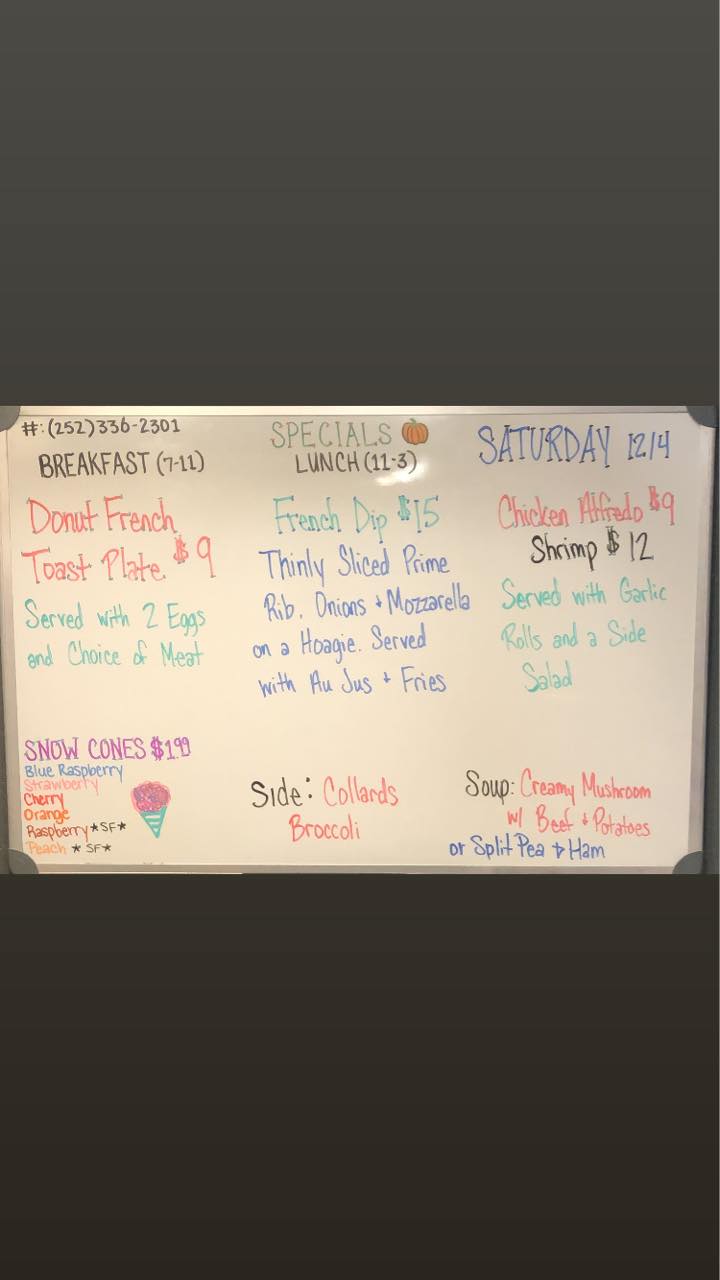 #: (252)336-2301
BREAKFAST (7-11)
Donut French
Toast Plate $9
Served with 2 Eggs
and Choice of Meat
SNOW CONES $1.99
Blue Raspberry
Strawberry
Cherry
Orange
Raspberry *SF*
Peach *SF*
SPECIALS
LUNCH (11-3)
French Dip $15
Thinly Sliced Prime
Rib, Onions + Mozzarella
on a Hoagie. Served
with Au Jus + Fries
Side: Collards
Broccoli
SATURDAY 12/4
Chicken Alfredo $9
Shrimp $12
Served with Garlic
Rolls and a Side
Salad
Soup: Creamy Mushroom
w/ Beef + Potatoes
or Split Pea + Ham